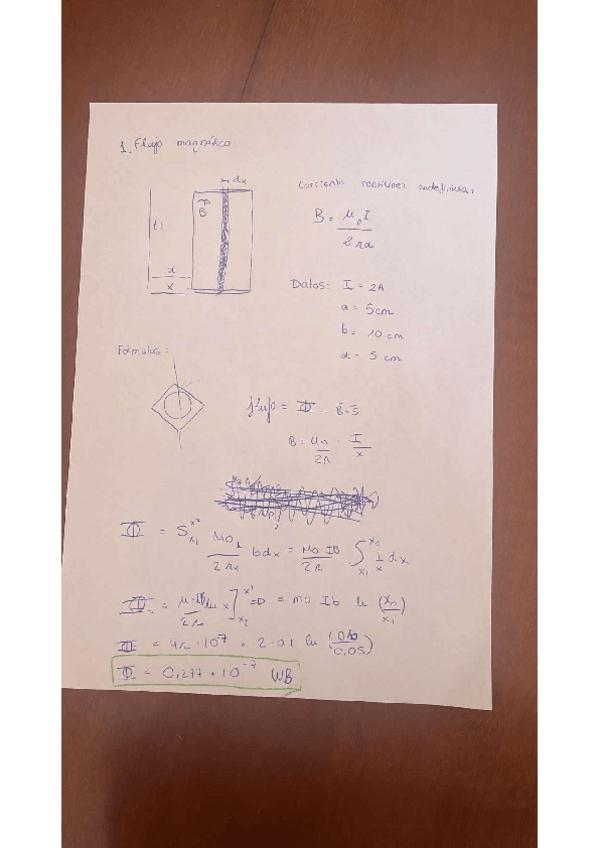 1. Flujo magnético
dx
Corriente rectilínea indefinida:
B
B = μ₀I / 2πa
I
d
x
Datos: I = 2A
a = 5cm
b = 10 cm
d = 5 cm
Fórmulas:
flujo = Φ = B·S
B = μ₀ / 2π · I / x
Φ = ∫ x₁ x₂ μ₀I / 2πx bdx = μ₀ Ib / 2π ∫ x₁ x₂ 1/x dx
Φ = μ·Ib / 2π ln x ] => = mo Ib ln (x₂/x₁)
Φ = 4π·10⁻⁷ · 2·01 ln (0'10/0,05)
Φ = 0,277·10⁻⁷ WB